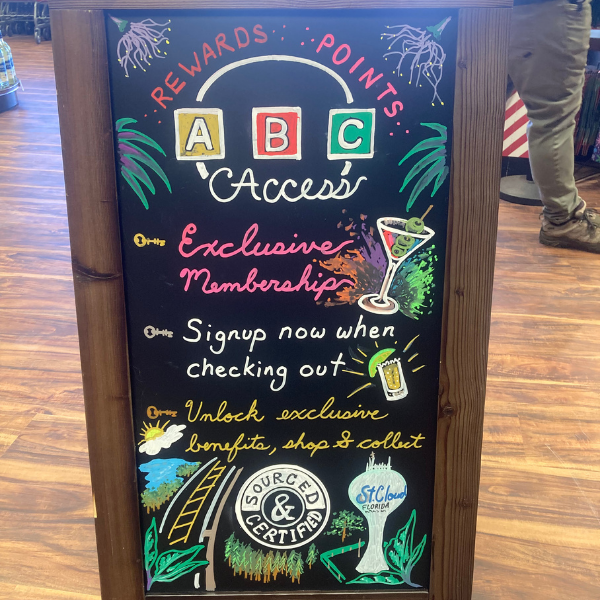 REWARDS POINTS
ABC
Access
Exclusive
Membership
Signup now when
checking out
Unlock exclusive
benefits, shop & collect
SOURCED
&
CERTIFIED
St. Cloud
FLORIDA